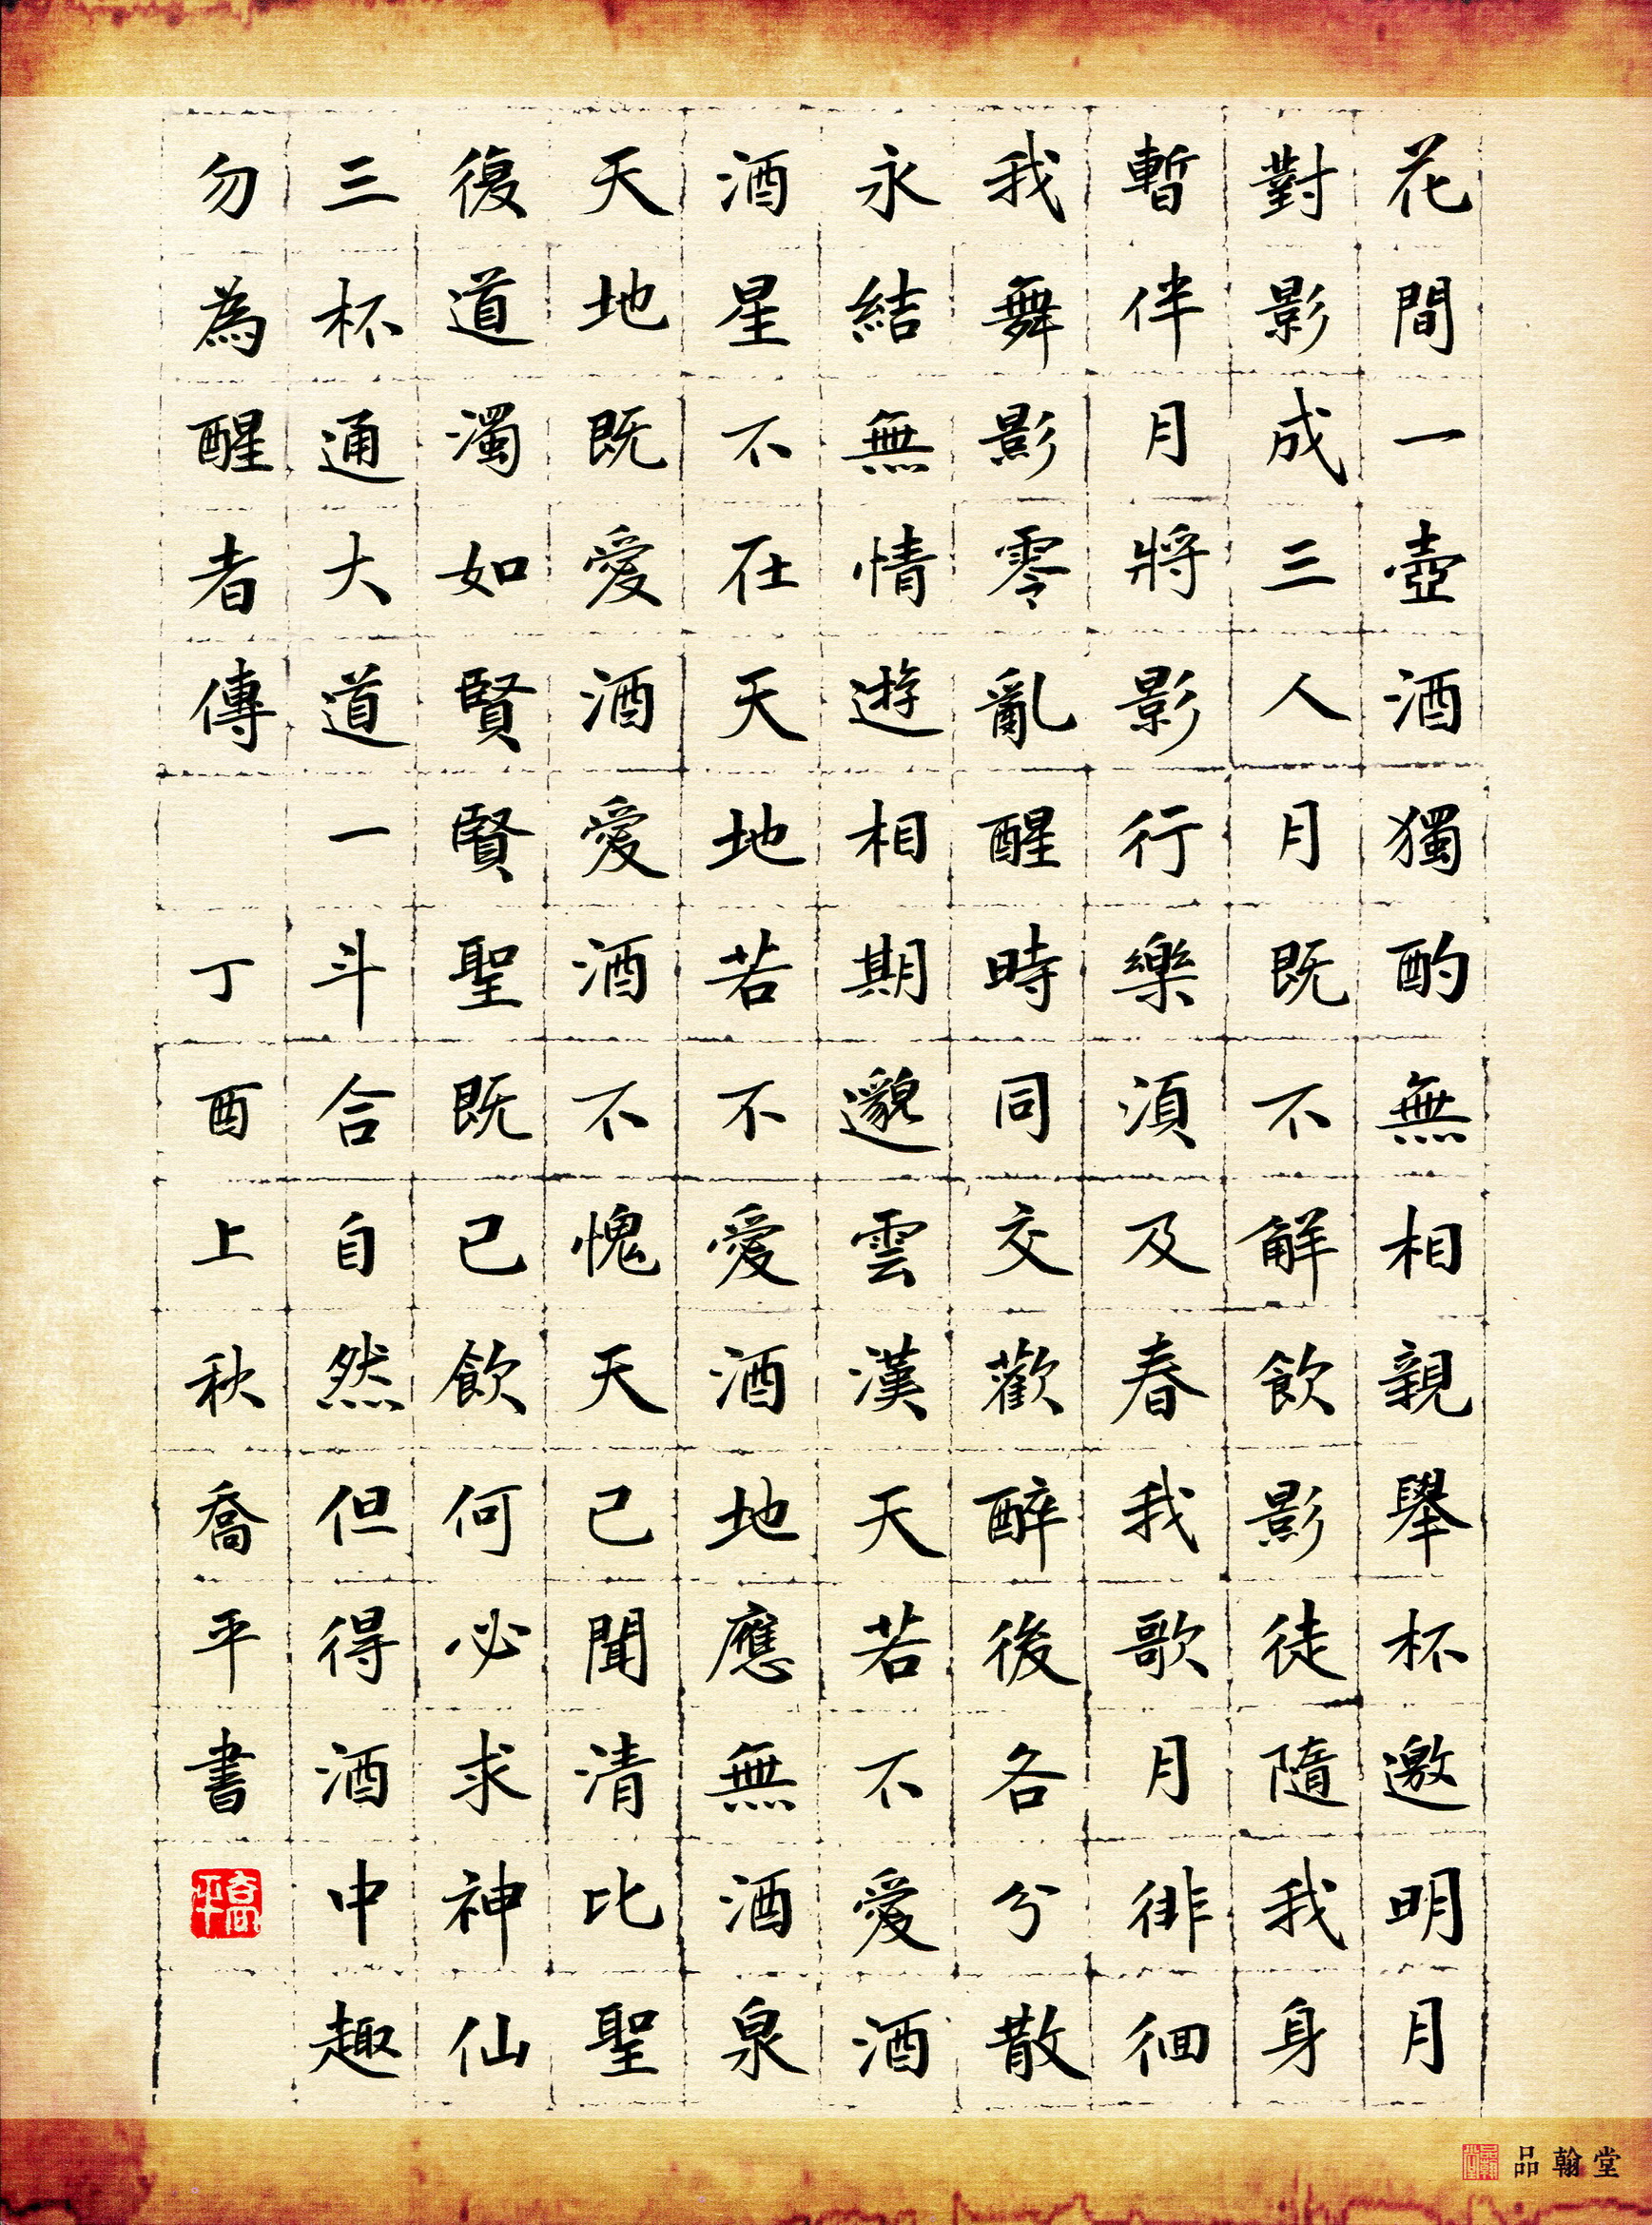 花間一壺酒獨酌無相親舉杯邀明月
對影成三人月既不解飲影徒隨我身
暫伴月將影行樂須及春我歌月徘徊
我舞影零亂醒時同交歡醉後各分散
永結無情遊相期邈雲漢天若不愛酒
酒星不在天地若不愛酒地應無酒泉
天地既愛酒愛酒不愧天已聞清比聖
復道濁如賢賢聖既已飲何必求神仙
三杯通大道一斗合自然但得酒中趣
勿為醒者傳 丁酉上秋喬平書
喬平
品翰堂